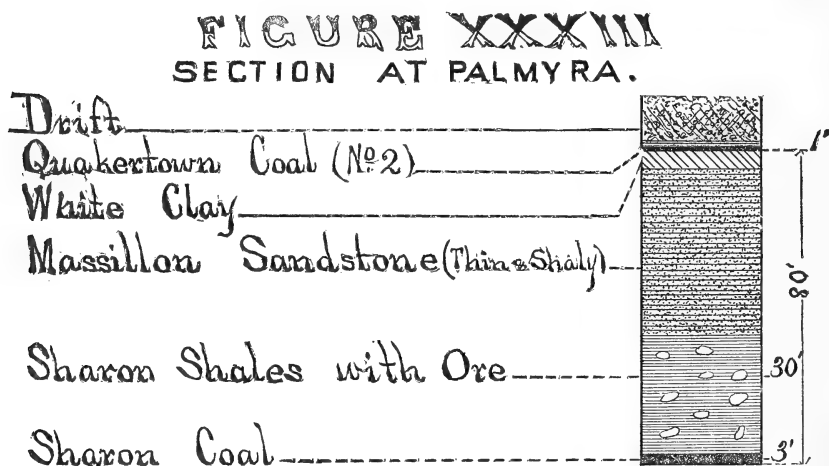 FIGURE XXXIII
SECTION AT PALMYRA.
Drift
Quakertown Coal (No. 2)
White Clay
Massillon Sandstone (Thin & Shaly)
80'
Sharon Shales with Ore 30'
Sharon Coal 3'